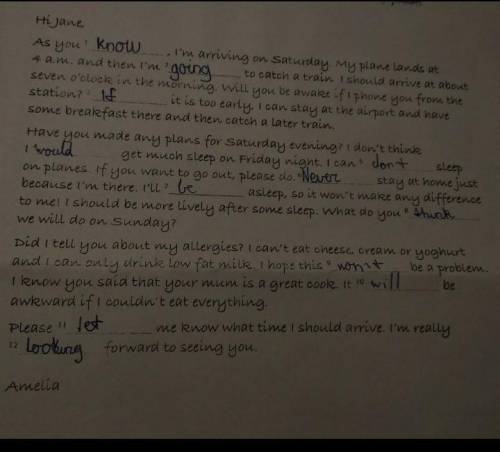 Hi Jane
As you ¹ know , I'm arriving on Saturday. My plane lands at
4 a.m. and then I'm ² going to catch a train. I should arrive at about
seven o'clock in the morning. Will you be awake if I phone you from the
station? ³ If it is too early, I can stay at the airport and have
some breakfast there and then catch a later train.
Have you made any plans for Saturday evening? I don't think
I ⁴ would get much sleep on Friday night. I can ⁵ don't sleep
on planes. If you want to go out, please do. ⁶ Never stay at home just
because I'm there. I'll ⁷ be asleep, so it won't make any difference
to me! I should be more lively after some sleep. What do you ⁸ think
we will do on Sunday?
Did I tell you about my allergies? I can't eat cheese, cream or yoghurt
and I can only drink low fat milk. I hope this ⁹ won't be a problem.
I know you said that your mum is a great cook. It ¹⁰ will be
awkward if I couldn't eat everything.
Please ¹¹ let me know what time I should arrive. I'm really
¹² looking forward to seeing you.
Amelia